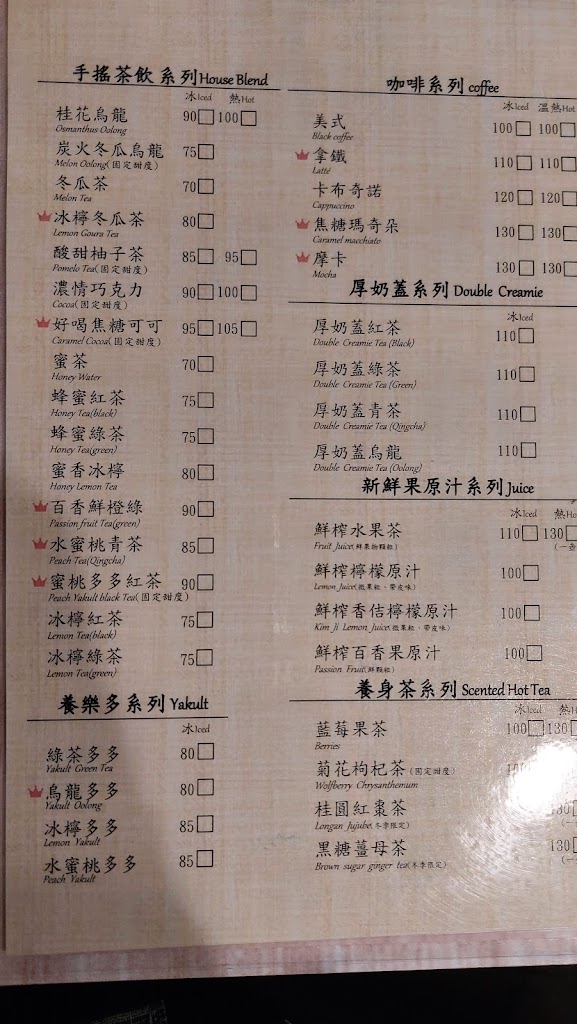 手搖茶飲系列 House Blend
冰Iced 熱Hot
桂花烏龍 90□ 100□
Osmanthus Oolong
炭火冬瓜烏龍 75□
Melon Oolong(固定甜度)
冬瓜茶 70□
Melon Tea
冰檸冬瓜茶 80□
Lemon Goura Tea
酸甜柚子茶 85□ 95□
Pomelo Tea(固定甜度)
濃情巧克力 90□ 100□
Cocoa(固定甜度)
好喝焦糖可可 95□ 105□
Caramel Cocoa(固定甜度)
蜜茶 70□
Honey Water
蜂蜜紅茶 75□
Honey Tea(black)
蜂蜜綠茶 75□
Honey Tea(green)
蜜香冰檸 80□
Honey Lemon Tea
百香鮮橙綠 90□
Passion fruit Tea(green)
水蜜桃青茶 85□
Peach Tea(Qingcha)
蜜桃多多紅茶 90□
Peach Yakult black Tea(固定甜度)
冰檸紅茶 75□
Lemon Tea(black)
冰檸綠茶 75□
Lemon Tea(green)
養樂多系列 Yakult
冰Iced
綠茶多多 80□
Yakult Green Tea
烏龍多多 80□
Yakult Oolong
冰檸多多 85□
Lemon Yakult
水蜜桃多多 85□
Peach Yakult
咖啡系列 coffee
冰Iced 溫熱Hot
美式 100□ 100□
Black coffee
拿鐵 110□ 110□
Latté
卡布奇諾 120□ 120□
Cappuccino
焦糖瑪奇朵 130□ 130□
Caramel macchiato
摩卡 130□ 130□
Mocha
厚奶蓋系列 Double Creamie
冰Iced
厚奶蓋紅茶 110□
Double Creamie Tea (Black)
厚奶蓋綠茶 110□
Double Creamie Tea (Green)
厚奶蓋青茶 110□
Double Creamie Tea (Qingcha)
厚奶蓋烏龍 110□
Double Creamie Tea (Oolong)
新鮮果原汁系列 Juice
冰Iced 熱Ho
鮮榨水果茶 110□ 130□
Fruit Juice(鮮果物顆粒) (一壺
鮮榨檸檬原汁 100□
Lemon Juice(微果粒、帶皮味)
鮮榨香佶檸檬原汁 100□
Kim Ji Lemon Juice(微果粒、帶皮味)
鮮榨百香果原汁 100□
Passion Fruit(鮮顆粒)
養身茶系列 Scented Hot Tea
冰Iced 熱H
藍莓果茶 100□ 130□
Berries
菊花枸杞茶(固定甜度) 100
Wolfberry Chrysanthemum
桂圓紅棗茶 130□
Longan Jujube(冬季限定) (一
黑糖薑母茶 130□
Brown sugar ginger tea(冬季限定) (一